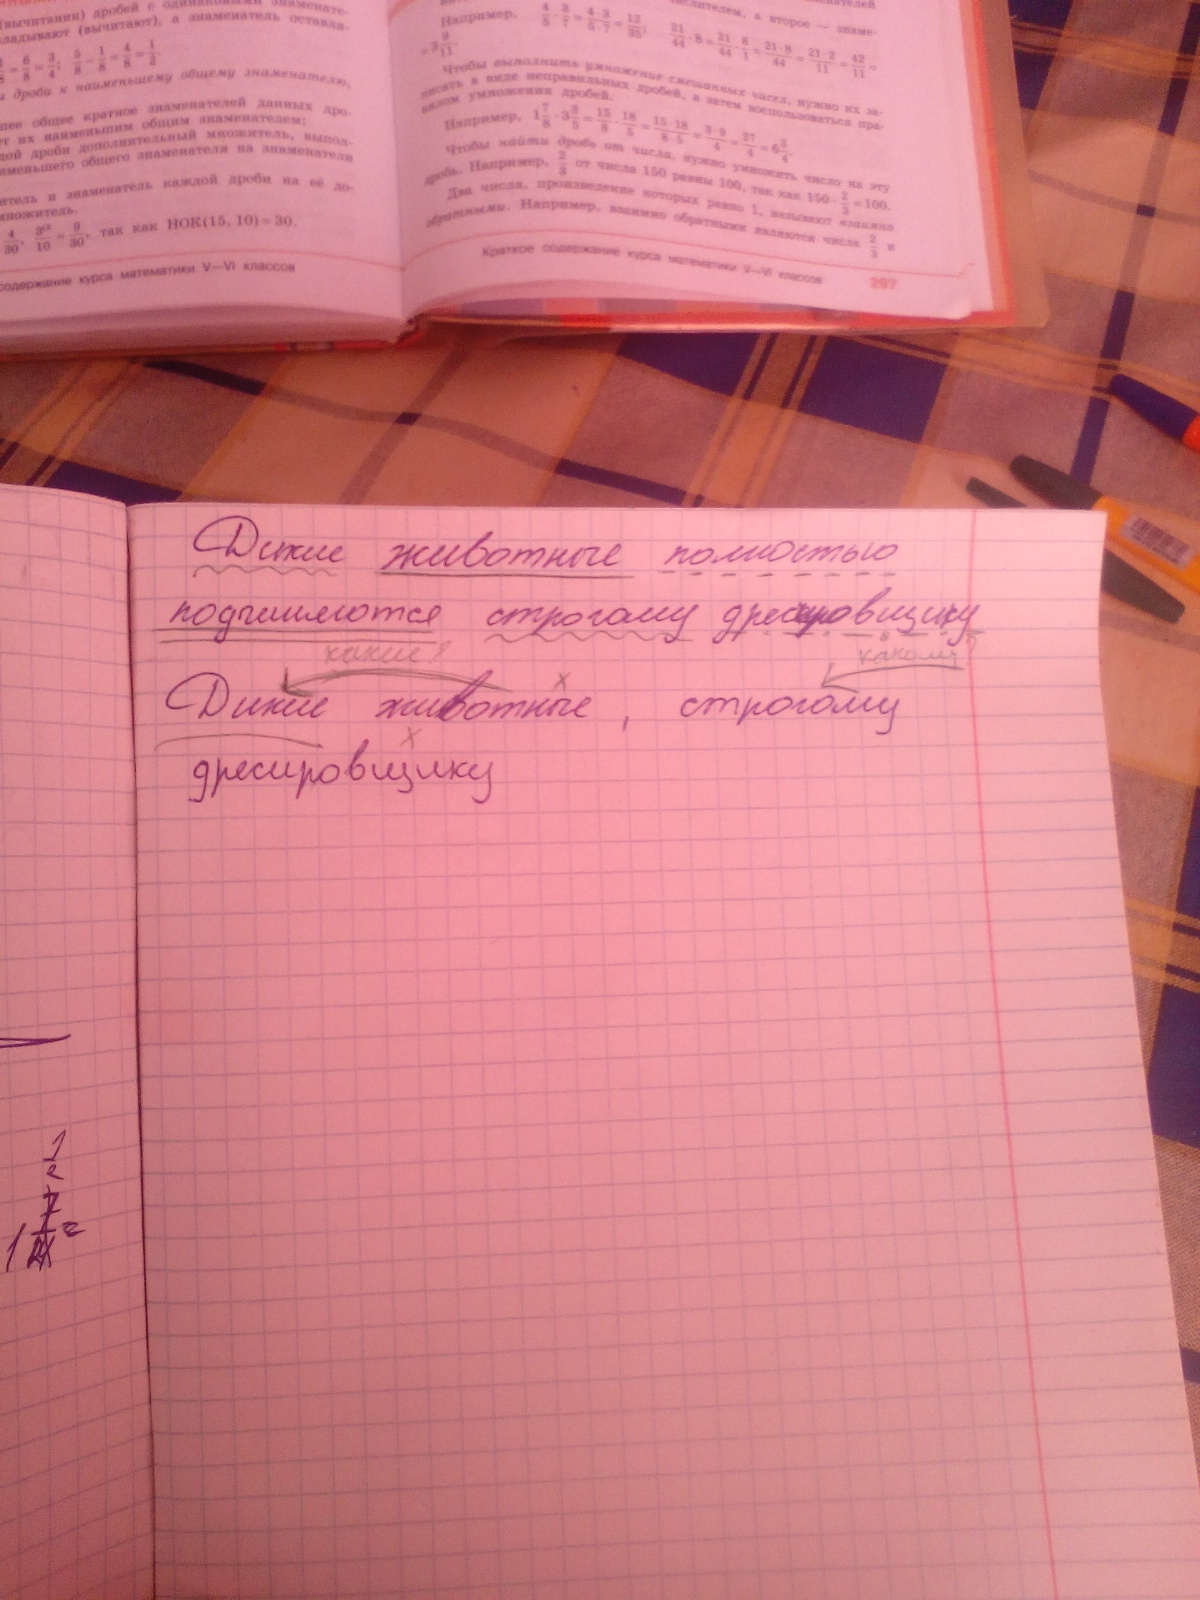 (вычитании) дробей с одинаковыми знаменате-
ладывают (вычитают), а знаменатель оставля-
6/8 = 3/4; 5/8 − 1/8 = 4/8 = 1/2.
дроби к наименьшему общему знаменателю,
общее кратное знаменателей данных дро-
их наименьшим общим знаменателем;
дроби дополнительный множитель, выпол-
именьшего общего знаменателя на знаменатели
итель и знаменатель каждой дроби на её до-
множитель.
4/30, 3/10 = 9/30, так как НОК(15, 10) = 30.
содержание курса математики V—VI классов
числителем, а второе — знаме-
Например, 4/5 · 3/7 = 4 · 3/5 · 7 = 12/35; 21/44 · 8 = 21/44 · 8/1 = 21 · 8/44 = 21 · 2/11 = 42/11 =
= 3 9/11.
Чтобы выполнить умножение смешанных чисел, нужно их за-
писать в виде неправильных дробей, а затем воспользоваться пра-
вилом умножения дробей.
Например, 1 7/8 · 3 3/5 = 15/8 · 18/5 = 15 · 18/8 · 5 = 3 · 9/4 = 27/4 = 6 3/4.
Чтобы найти дробь от числа, нужно умножить число на эту
дробь. Например, 2/3 от числа 150 равны 100, так как 150 · 2/3 = 100.
Два числа, произведение которых равно 1, называют взаимно
обратными. Например, взаимно обратными являются числа 2/3 и
Краткое содержание курса математики V—VI классов 297
Дикие животные полностью
подчиняются строгому дресировщику
какие? какому?
Дикие животные, строгому
дресировщику